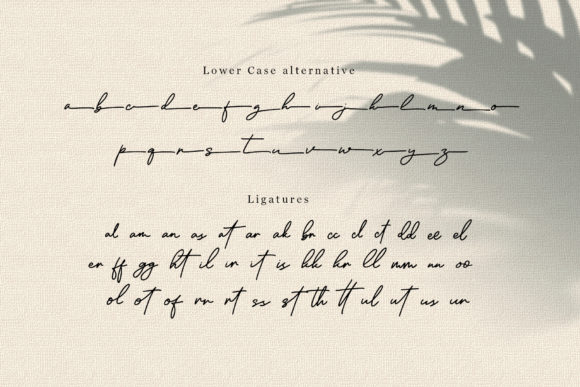 Lower Case alternative
a b c d e f g h i j k l m n o
p q r s t u v w x y z
Ligatures
al am an as at ar ak br cc cl ct dd ee el
er ff gg ht il in it is kk kn ll mm nn oo
ol ot of rn rt ss st th tt ul ut us un